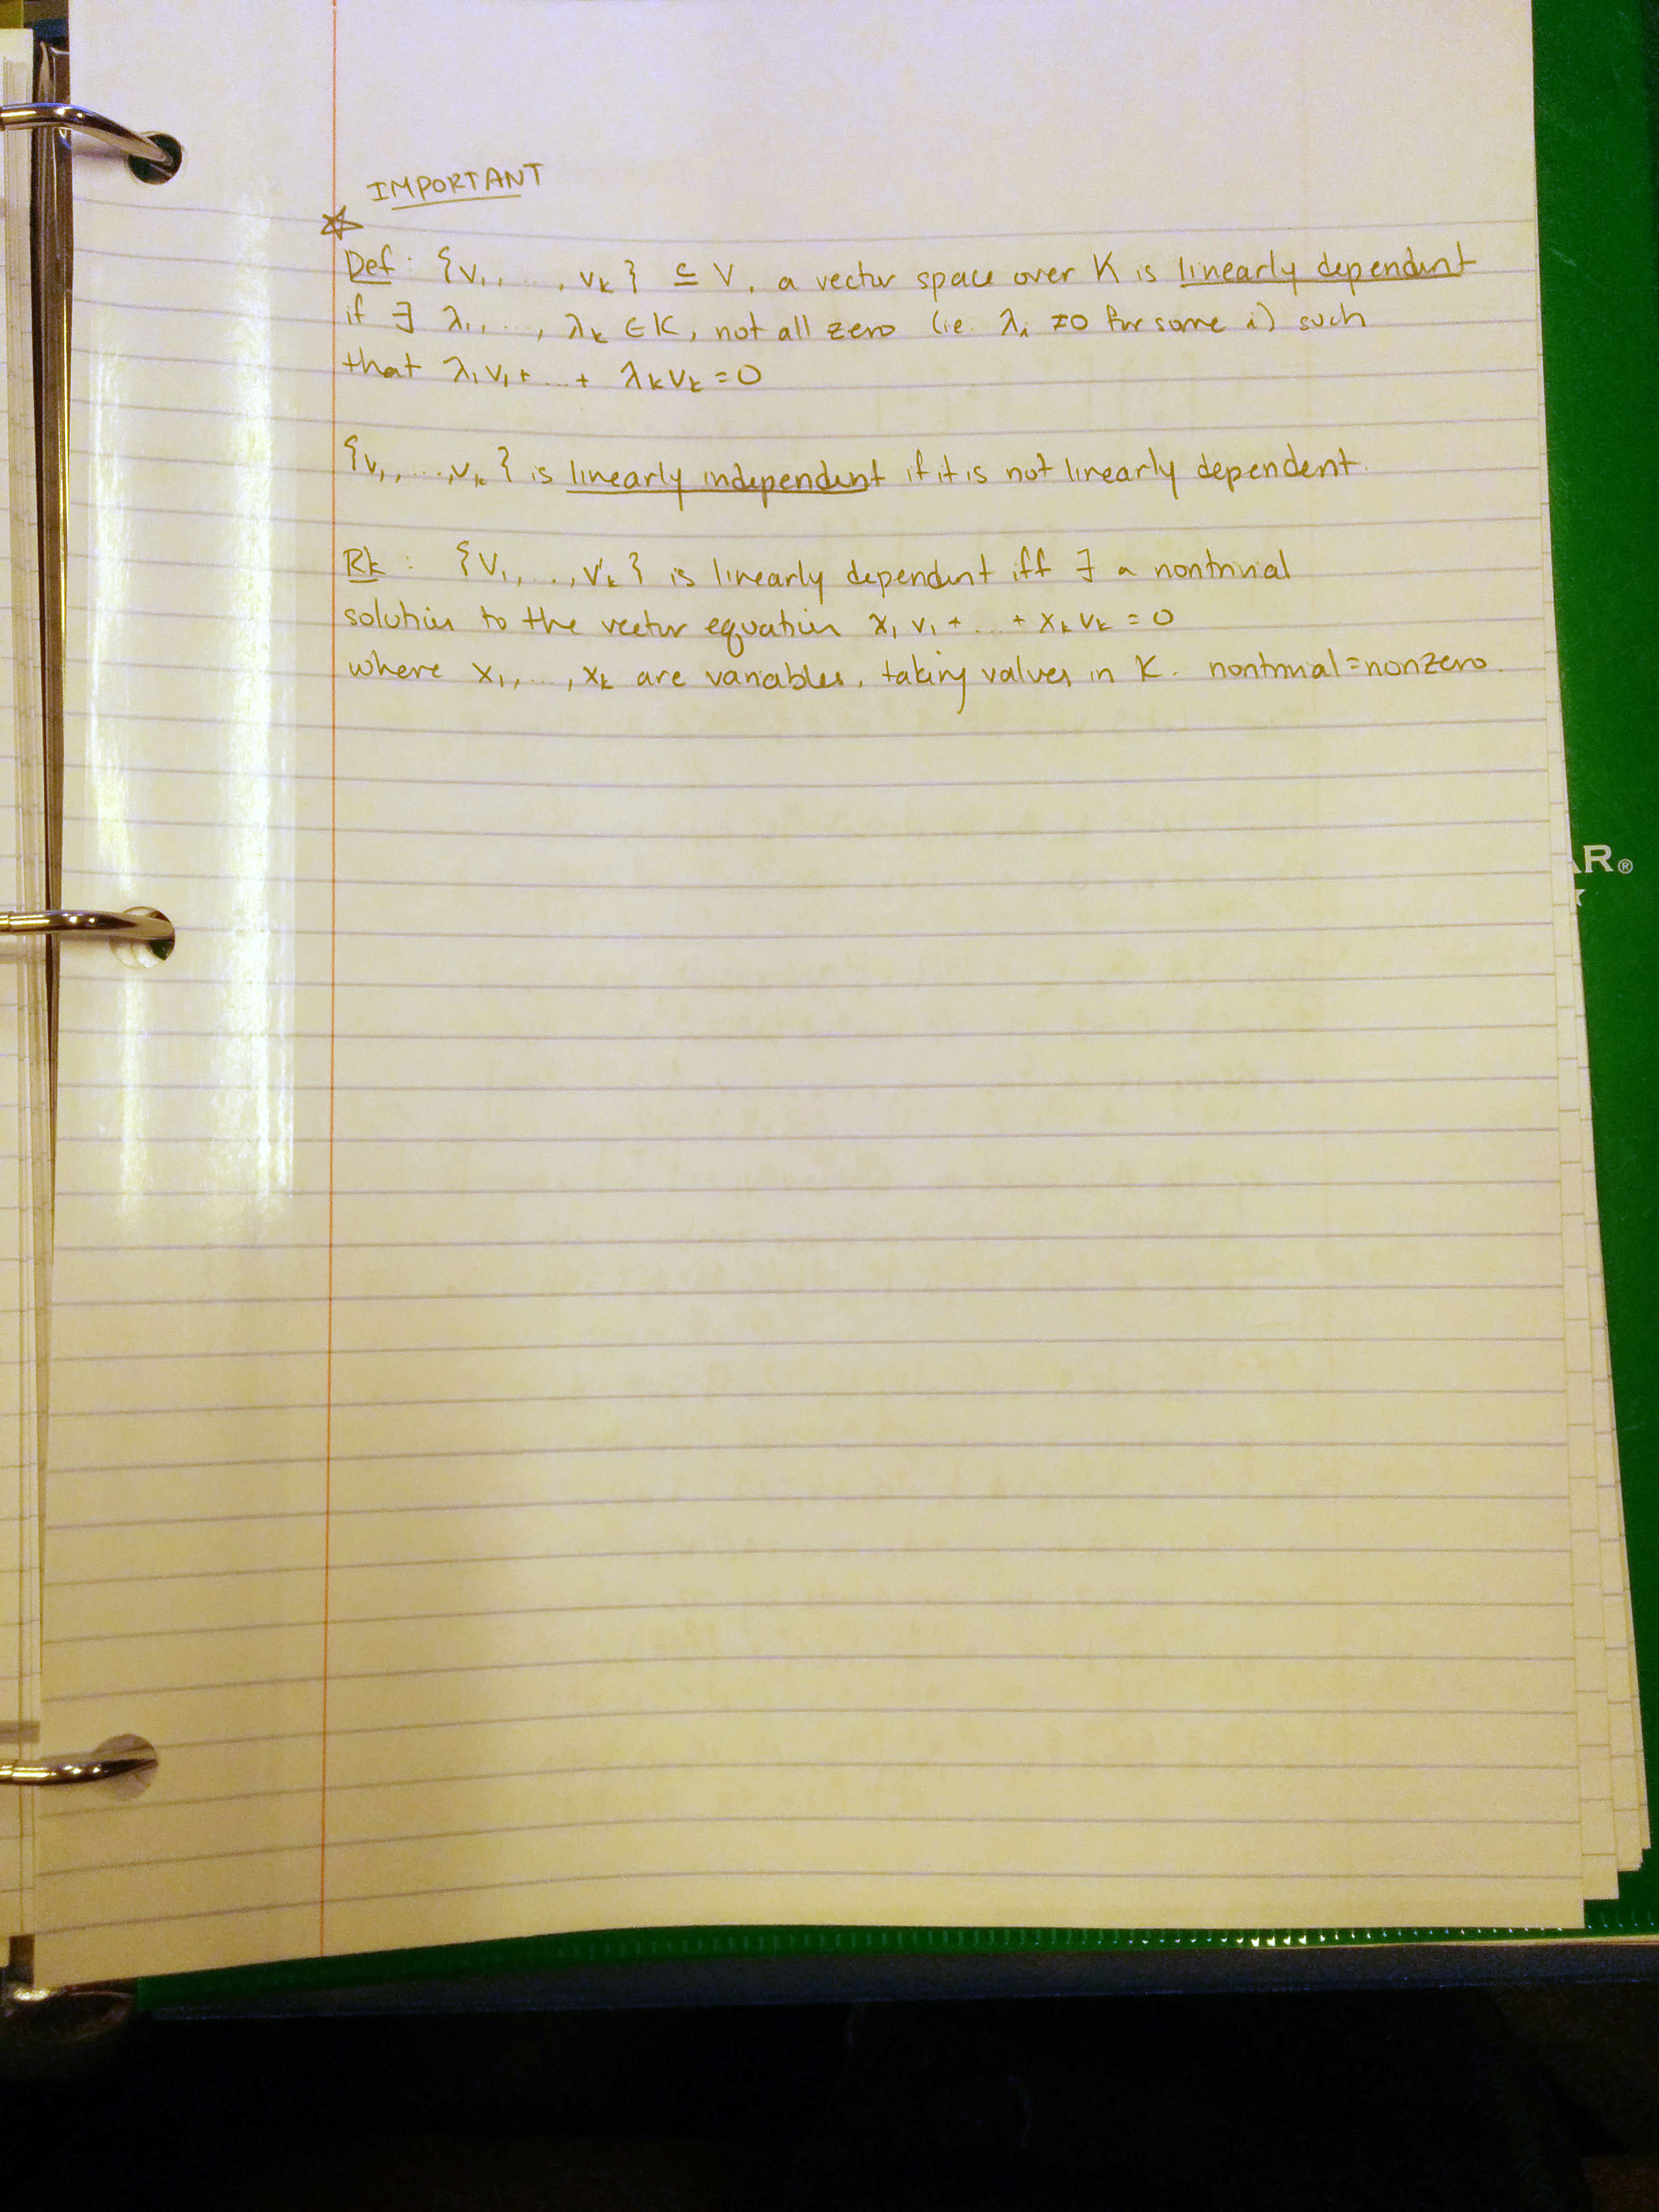 IMPORTANT
Def: {v₁, ..., vₖ} ⊆ V, a vector space over K is linearly dependent
if ∃ λ₁, ..., λₖ ∈ K, not all zero (ie λᵢ ≠ 0 for some i) such
that λ₁v₁ + ... + λₖvₖ = 0
{v₁, ..., vₖ} is linearly independent if it is not linearly dependent.
Rk: {v₁, ..., vₖ} is linearly dependent iff ∃ a nontrivial
solution to the vector equation x₁v₁ + ... + xₖvₖ = 0
where x₁, ..., xₖ are variables, taking values in K. nontrivial = nonzero.
AR®